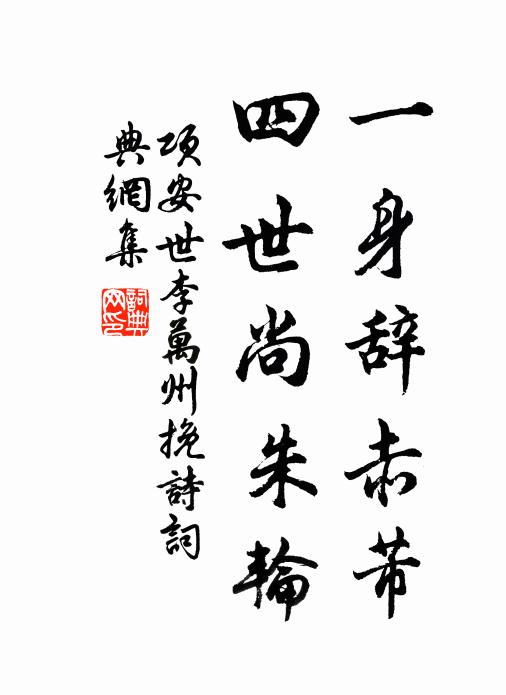 一身辞赤芾
四世尚朱輪
項安世李萬州挽詩詞
典網集
詞典網印